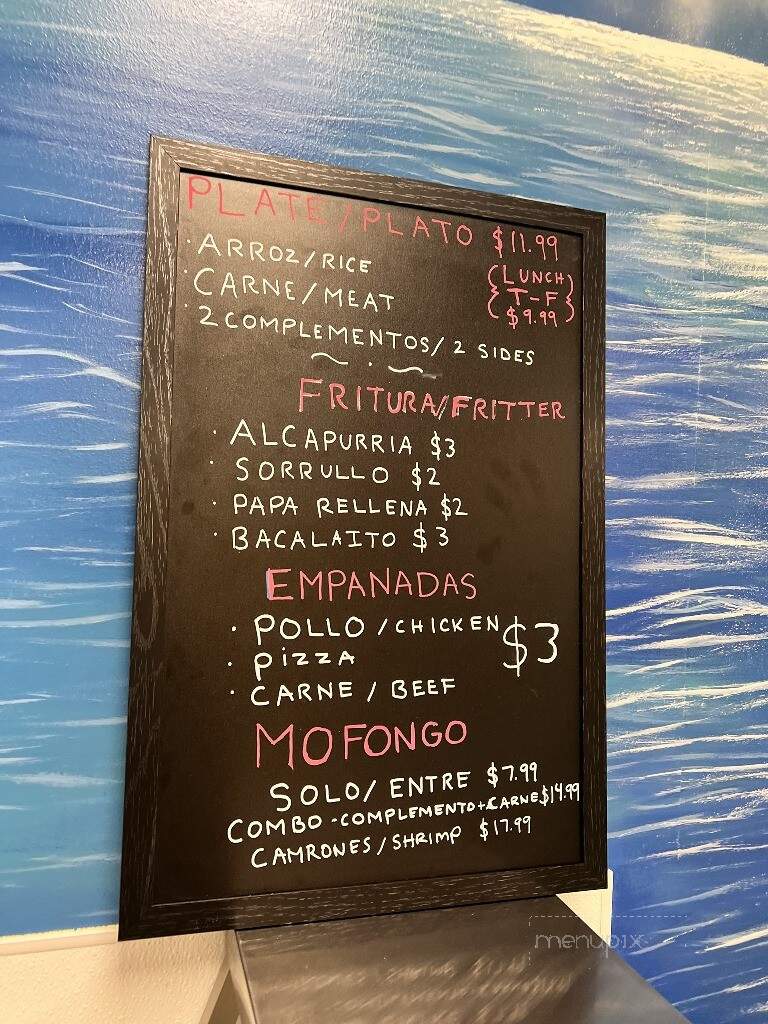 PLATE/PLATO $11.99
· ARROZ/RICE
(LUNCH)
· CARNE/MEAT
{ T-F }
( $9.99 )
· 2 COMPLEMENTOS/ 2 SIDES
~ · ~
FRITURA/FRITTER
· ALCAPURRIA $3
· SORRULLO $2
· PAPA RELLENA $2
· BACALAITO $3
EMPANADAS
· POLLO /CHICKEN
$3
· PIZZA
· CARNE / BEEF
MOFONGO
SOLO/ ENTRE $7.99
COMBO -COMPLEMENTO+CARNE $14.99
CAMRONES/SHRIMP $17.99
menupix